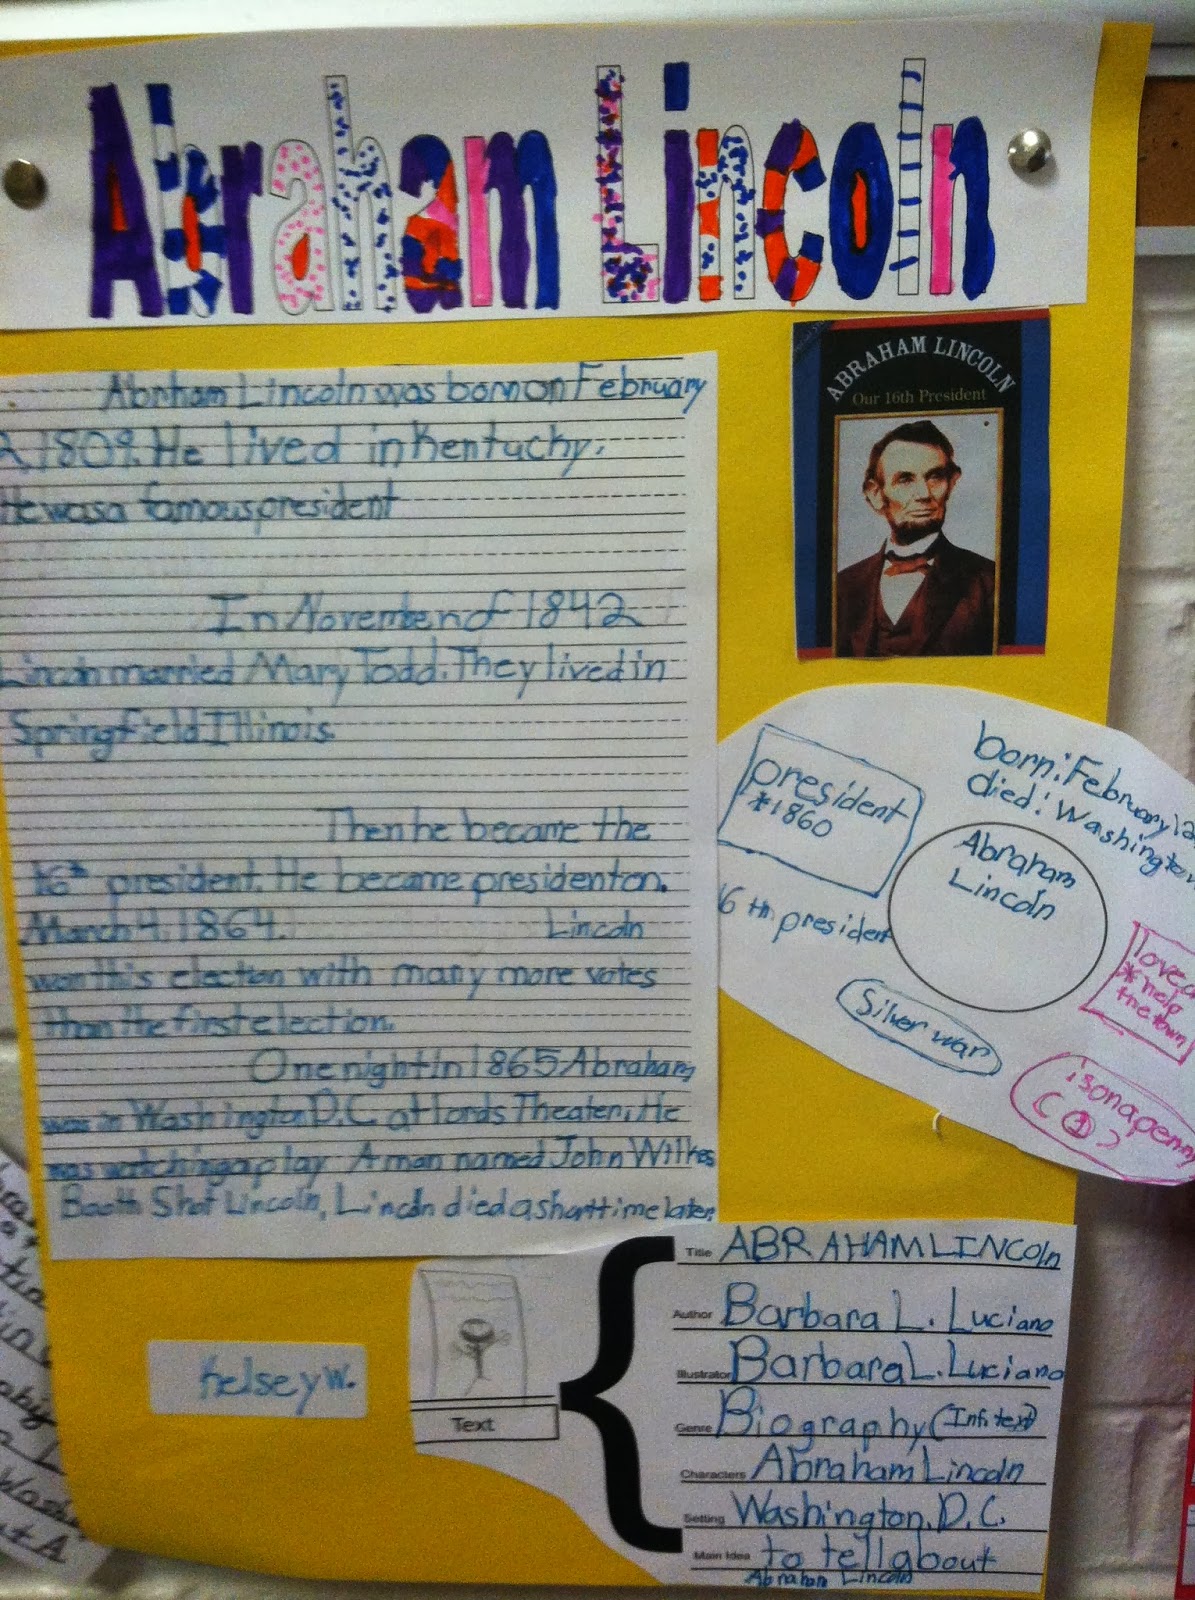 Abraham Lincoln
Abrham Lincoln was born on February
2, 1809. He lived in Kentucky.
He was a famous president
In November of 1842
Lincoln married Mary Todd. They lived in
Springfield Illinois.
Then he became the
16th president. He became president on.
March 4, 1864. Lincoln
won this election with many more votes
than the first election.
One night in 1865 Abraham
was in Washington D.C at Fords Theater. He
was watching a play A man named John Wilkes
Booth Shot Lincoln. Lincoln died a short time later.
ABRAHAM LINCOLN
Our 16th President
president
*1860
born: February 12
died: Washington
Abraham
Lincoln
16 th president
Silver war
love
*help
the town
is on a penny
( 1 )
Kelsey W.
Text
Title ABRAHAM LINColn
Author Barbara L. Luciano
Illustrator Barbara L. Luciano
Genre Biography (Info text)
Characters Abraham Lincoln
Setting Washington, D.C.
Main Idea to tell about
Abraham Lincoln